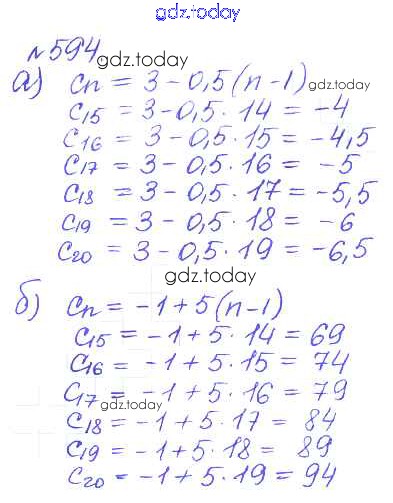 gdz.today
№594
gdz.today
а) Cn = 3 - 0,5(n-1) gdz.today
C15 = 3 - 0,5 · 14 = -4
C16 = 3 - 0,5 · 15 = -4,5
C17 = 3 - 0,5 · 16 = -5
C18 = 3 - 0,5 · 17 = -5,5
C19 = 3 - 0,5 · 18 = -6
C20 = 3 - 0,5 · 19 = -6,5
gdz.today
б) Cn = -1 + 5(n-1)
C15 = -1 + 5 · 14 = 69
C16 = -1 + 5 · 15 = 74
C17 = -1 + 5 · 16 = 79
gdz.today
C18 = -1 + 5 · 17 = 84
C19 = -1 + 5 · 18 = 89
C20 = -1 + 5 · 19 = 94
gdz.today